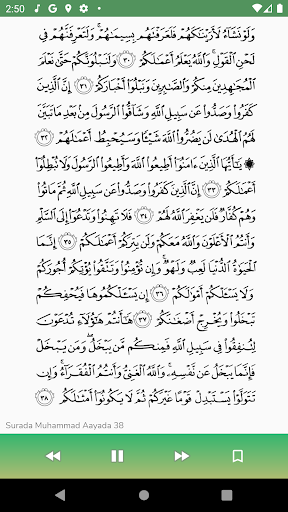 2:50
وَلَوْ نَشَآءُ لَأَرَيْنَٰكَهُمْ فَلَعَرَفْتَهُم بِسِيمَٰهُمْ ۚ وَلَتَعْرِفَنَّهُمْ فِى
لَحْنِ ٱلْقَوْلِ ۚ وَٱللَّهُ يَعْلَمُ أَعْمَٰلَكُمْ ﴿٣٠﴾ وَلَنَبْلُوَنَّكُمْ حَتَّىٰ نَعْلَمَ
ٱلْمُجَٰهِدِينَ مِنكُمْ وَٱلصَّٰبِرِينَ وَنَبْلُوَا۟ أَخْبَارَكُمْ ﴿٣١﴾ إِنَّ ٱلَّذِينَ
كَفَرُوا۟ وَصَدُّوا۟ عَن سَبِيلِ ٱللَّهِ وَشَآقُّوا۟ ٱلرَّسُولَ مِنۢ بَعْدِ مَا تَبَيَّنَ
لَهُمُ ٱلْهُدَىٰ لَن يَضُرُّوا۟ ٱللَّهَ شَيْـًٔا وَسَيُحْبِطُ أَعْمَٰلَهُمْ ﴿٣٢﴾
۞ يَٰٓأَيُّهَا ٱلَّذِينَ ءَامَنُوٓا۟ أَطِيعُوا۟ ٱللَّهَ وَأَطِيعُوا۟ ٱلرَّسُولَ وَلَا تُبْطِلُوٓا۟
أَعْمَٰلَكُمْ ﴿٣٣﴾ إِنَّ ٱلَّذِينَ كَفَرُوا۟ وَصَدُّوا۟ عَن سَبِيلِ ٱللَّهِ ثُمَّ مَاتُوا۟
وَهُمْ كُفَّارٌ فَلَن يَغْفِرَ ٱللَّهُ لَهُمْ ﴿٣٤﴾ فَلَا تَهِنُوا۟ وَتَدْعُوٓا۟ إِلَى ٱلسَّلْمِ
وَأَنتُمُ ٱلْأَعْلَوْنَ وَٱللَّهُ مَعَكُمْ وَلَن يَتِرَكُمْ أَعْمَٰلَكُمْ ﴿٣٥﴾ إِنَّمَا
ٱلْحَيَوٰةُ ٱلدُّنْيَا لَعِبٌ وَلَهْوٌ ۚ وَإِن تُؤْمِنُوا۟ وَتَتَّقُوا۟ يُؤْتِكُمْ أُجُورَكُمْ
وَلَا يَسْـَٔلْكُمْ أَمْوَٰلَكُمْ ﴿٣٦﴾ إِن يَسْـَٔلْكُمُوهَا فَيُحْفِكُمْ
تَبْخَلُوا۟ وَيُخْرِجْ أَضْغَٰنَكُمْ ﴿٣٧﴾ هَٰٓأَنتُمْ هَٰٓؤُلَآءِ تُدْعَوْنَ
لِتُنفِقُوا۟ فِى سَبِيلِ ٱللَّهِ فَمِنكُم مَّن يَبْخَلُ ۖ وَمَن يَبْخَلْ
فَإِنَّمَا يَبْخَلُ عَن نَّفْسِهِۦ ۚ وَٱللَّهُ ٱلْغَنِىُّ وَأَنتُمُ ٱلْفُقَرَآءُ ۚ وَإِن
تَتَوَلَّوْا۟ يَسْتَبْدِلْ قَوْمًا غَيْرَكُمْ ثُمَّ لَا يَكُونُوٓا۟ أَمْثَٰلَكُم ﴿٣٨﴾
Surada Muhammad Aayada 38